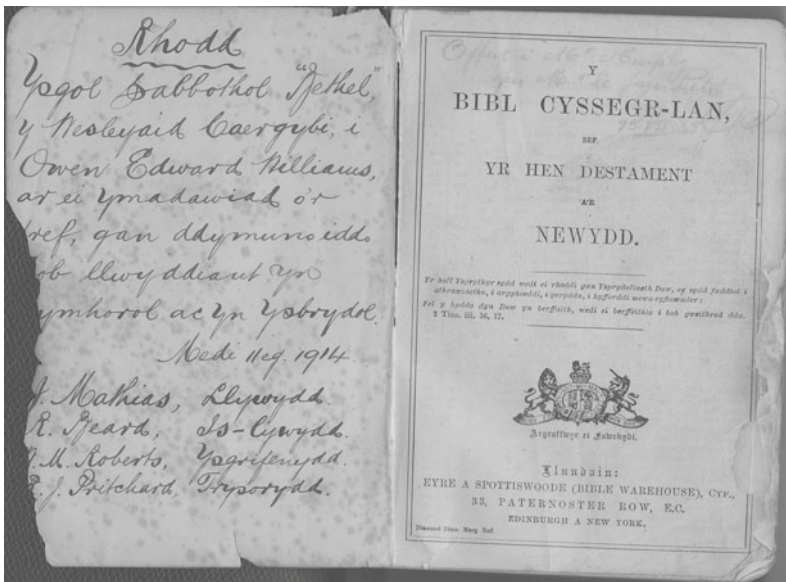 Rhodd
Ysgol Sabbothol "Bethel",
y Wesleyaid Caergybi, i
Owen Edward Williams,
ar ei ymadawiad o'r
ref, gan ddymuno iddo
ob llwyddiant yn
ymhorol ac yn Ysbrydol.
Medi 11eg. 1914.
J. Mathias, Llywydd.
R. Beard, Is-Lywydd.
J. M. Roberts, Ysgrifenydd.
R. J. Pritchard, Trysorydd.
Offert à Mr Murphy
Y
BIBL CYSSEGR-LAN,
SEF
YR HEN DESTAMENT
A'R
NEWYDD.
Yr holl Ysgrythyr sydd wedi ei rhoddi gan Ysprydoliaeth Duw, ac sydd fuddiol i
athrawiaethu, i argyhoeddi, i geryddu, i hyfforddi mewn cyfiawnder:
Fel y byddo dyn Duw yn berffaith, wedi ei berffeithio i bob gweithred dda.
2 Tim. iii. 16, 17.
Argraffwyd ei Fawrhydi.
Llundain:
EYRE A SPOTTISWOODE (BIBLE WAREHOUSE), CYF.,
33, PATERNOSTER ROW, E.C.
EDINBURGH A NEW YORK.
Diamond 24mo. Marg. Ref.